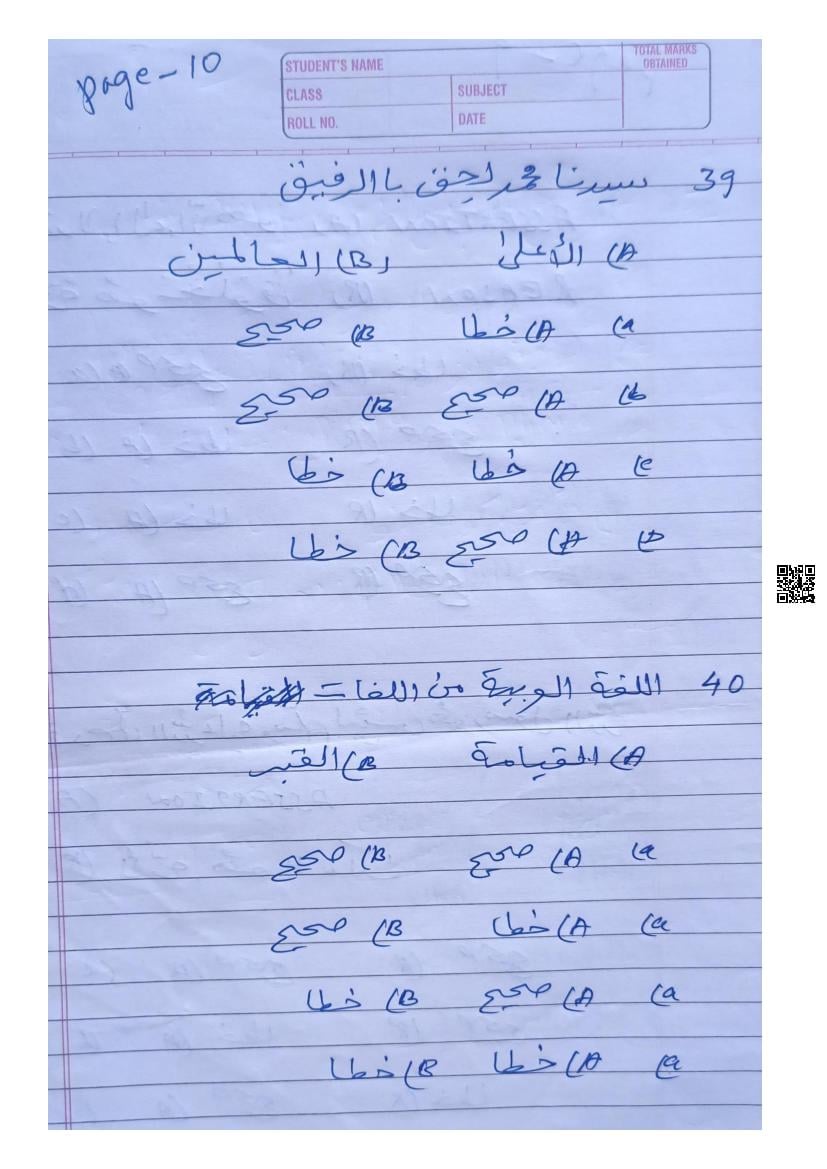 page-10
STUDENT'S NAME
TOTAL MARKS OBTAINED
CLASS
SUBJECT
ROLL NO.
DATE
39 سيدنا محمد لحق باالرفيق
A) الأعلىٰ B) العالمين
a) A) خطا B) صحيح
b) A) صحيح B) صحيح
c) A) خطا B) خطا
D) A) صحيح B) خطا
40 اللغة العربية من اللغات
A) القيامة B) القبر
a) A) صحيح B) صحيح
a) A) خطا B) صحيح
a) A) صحيح B) خطا
a) A) خطا B) خطا